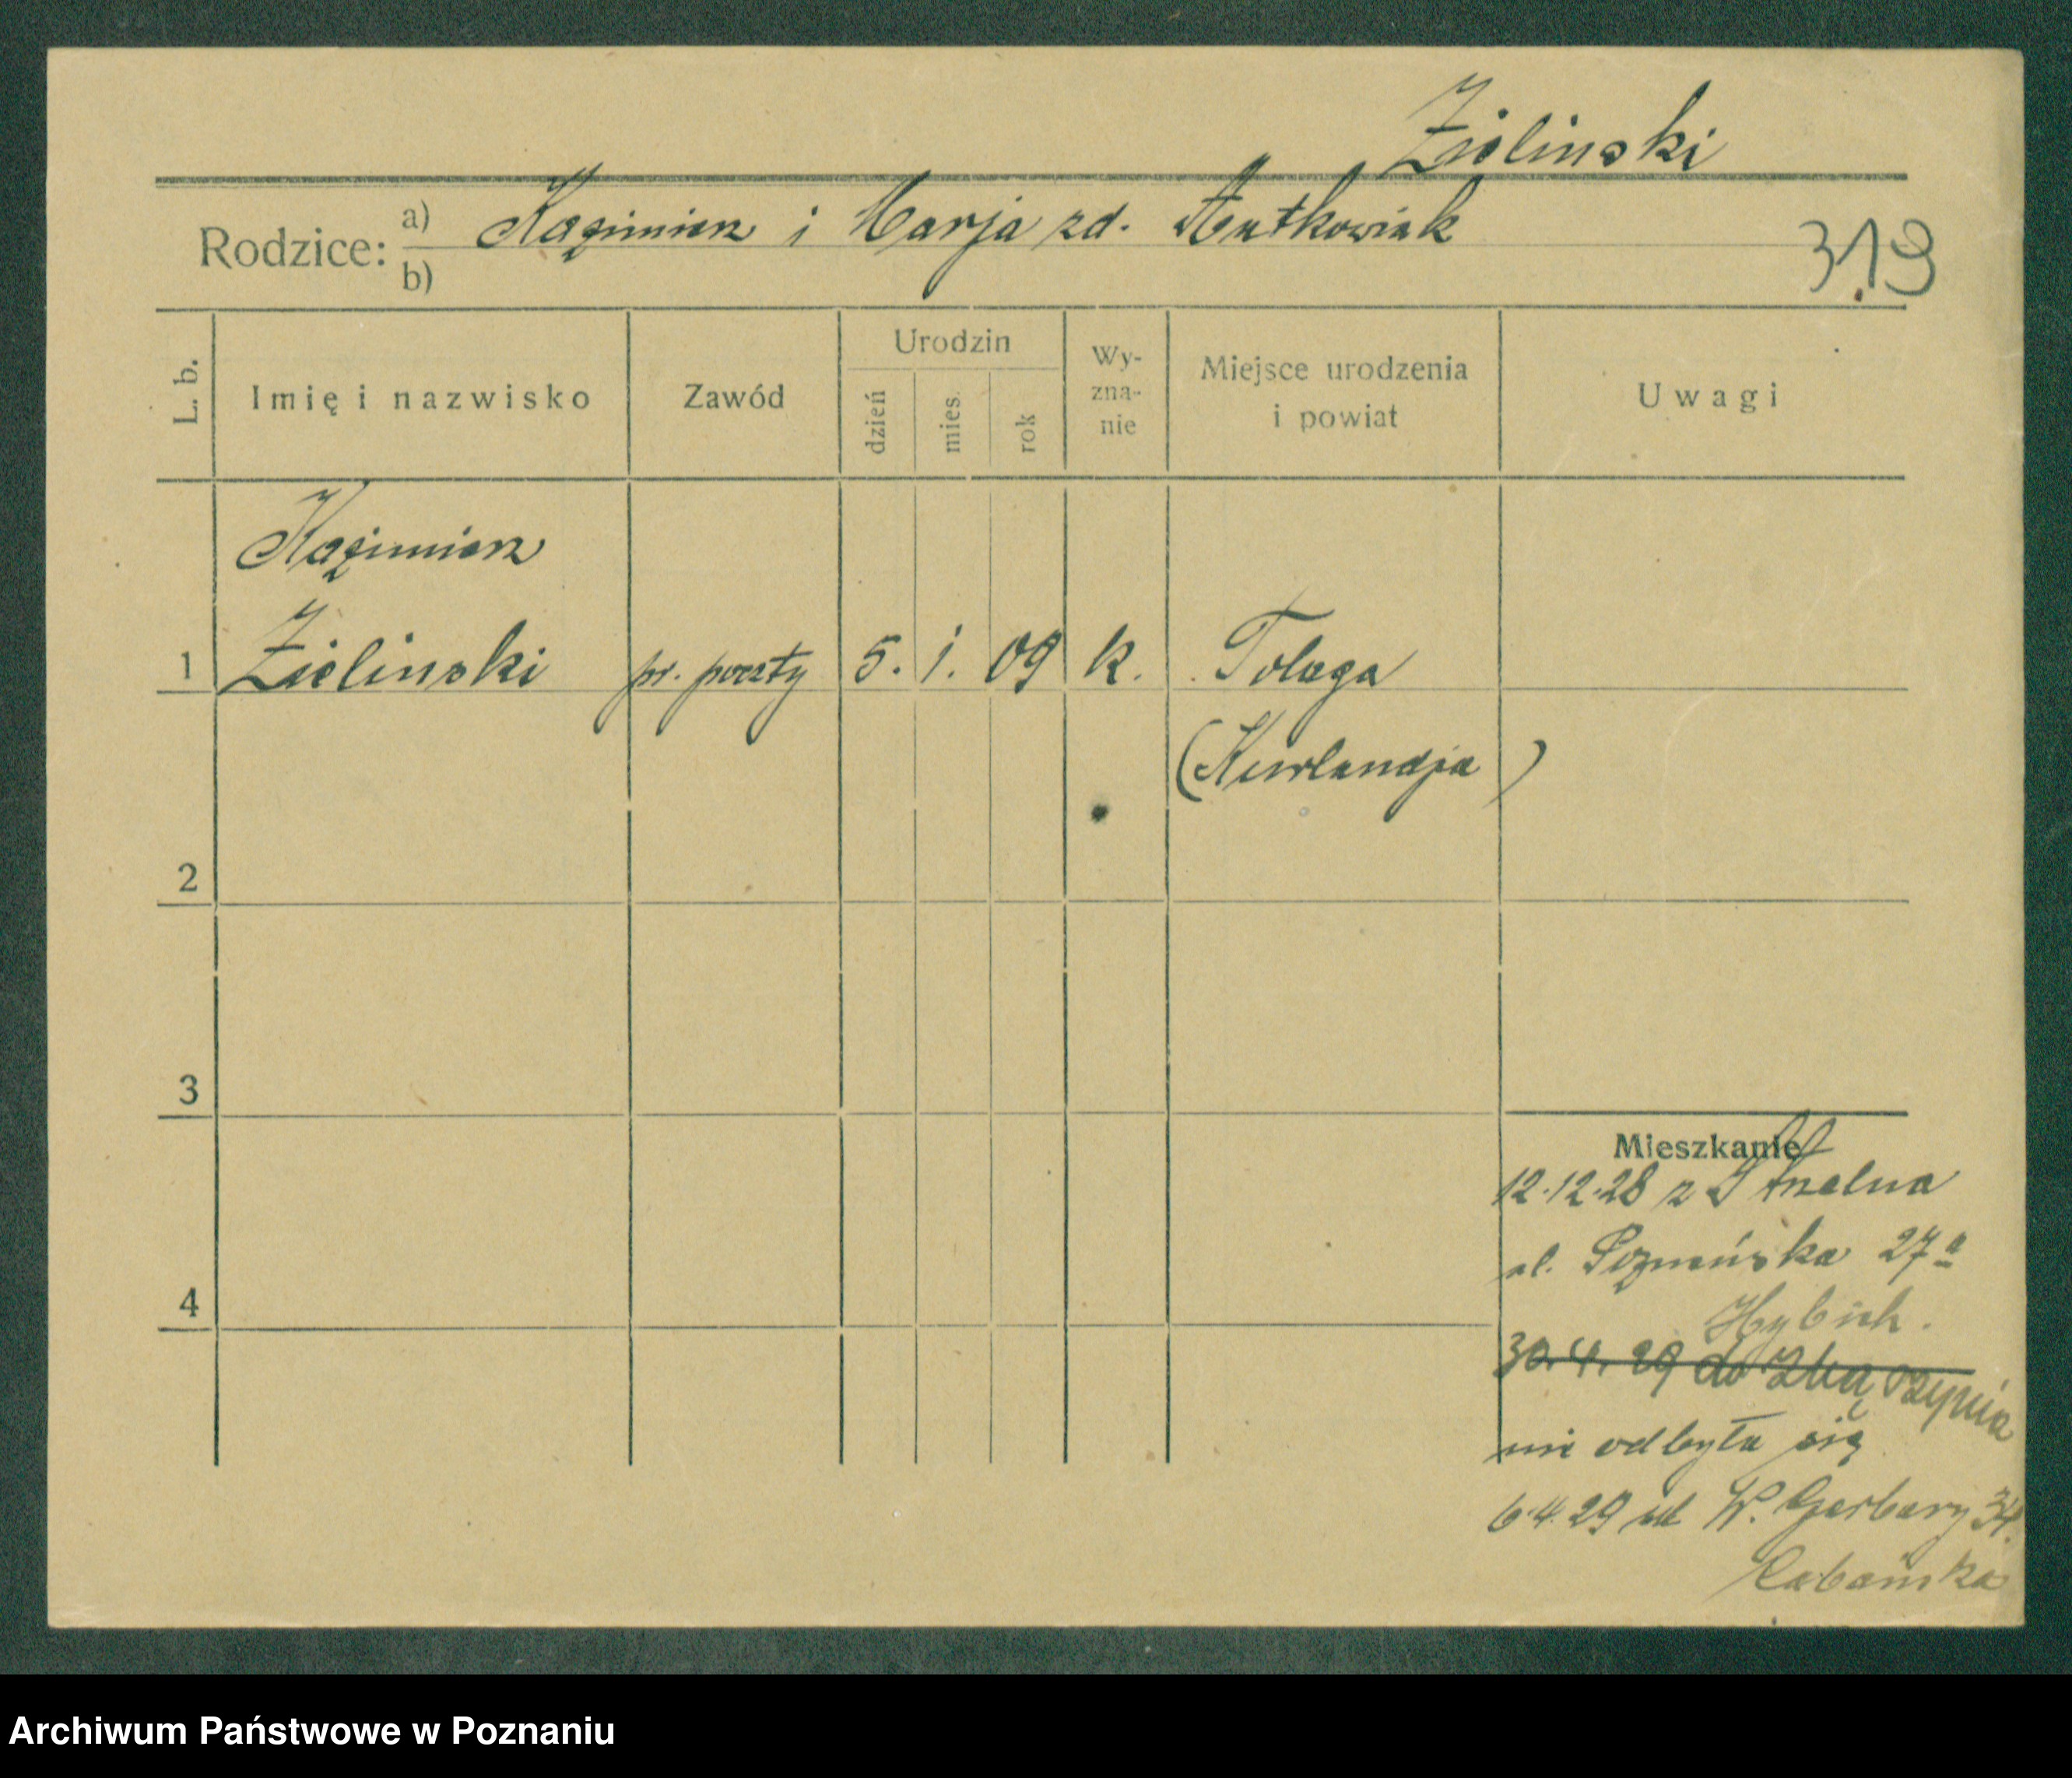 Zielinski
Rodzice: a) Kazimierz i Marja zd. Rutkowiak
b)
319
L. b. Imię i nazwisko Zawód Urodzin dzień mies. rok Wy-zna-nie Miejsce urodzenia i powiat Uwagi
Kazimierz
1 Zielinski pr. poczty 5. 1. 09 k. Tolaga
(Kurlandja)
2
3
Mieszkanie
12.12.28 z Strzelna
ul. Poznańska 27a
4
30.4.29 do Zbąszynia
nie odbyła się
6.4.29 ul W. Garbary 34.
Archiwum Państwowe w Poznaniu